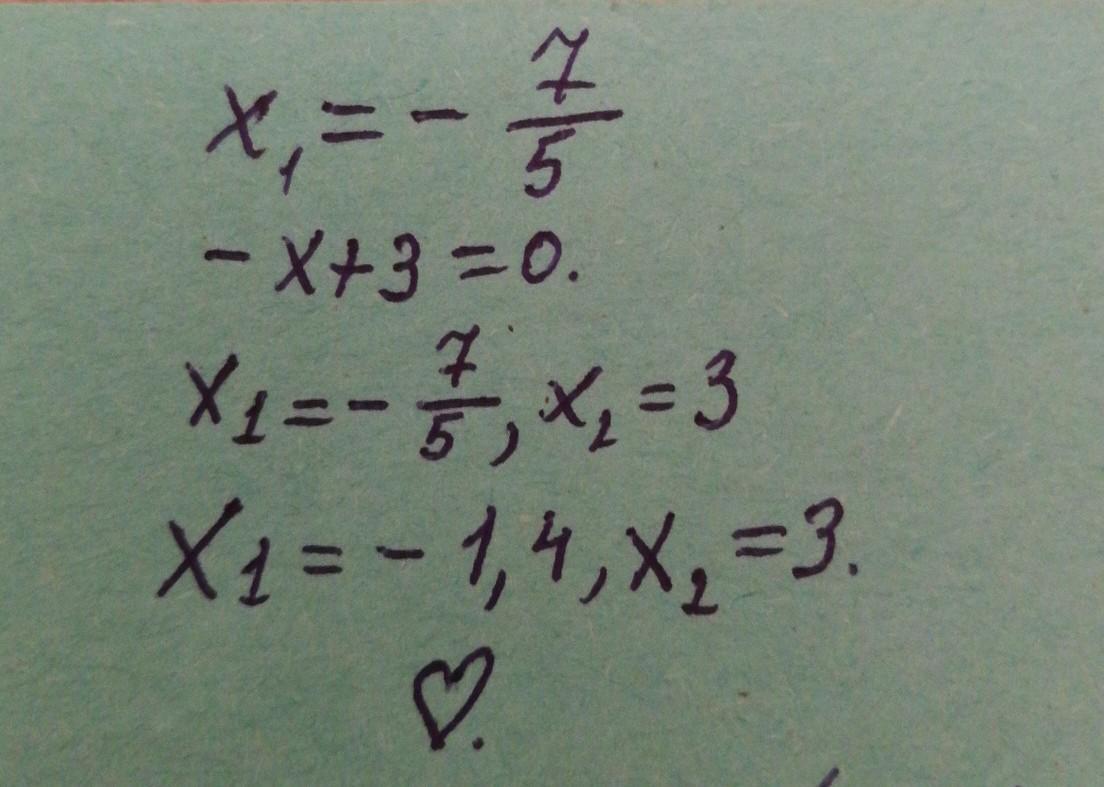 x₁ = - 7/5
- x + 3 = 0.
x₁ = - 7/5, x₂ = 3
x₁ = - 1,4, x₂ = 3.
♡.